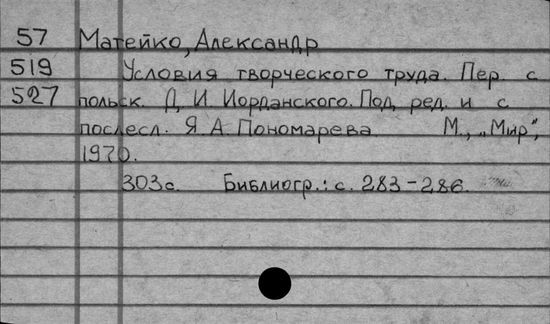 57 Матейко, Александр
519 Условия творческого труда. Пер. с
527 польск. Д. И. Иорданского. Под ред. и с
послесл. Я. А. Пономарева М., „Мир",
1970.
303 с. Библиогр.: с. 283-286.